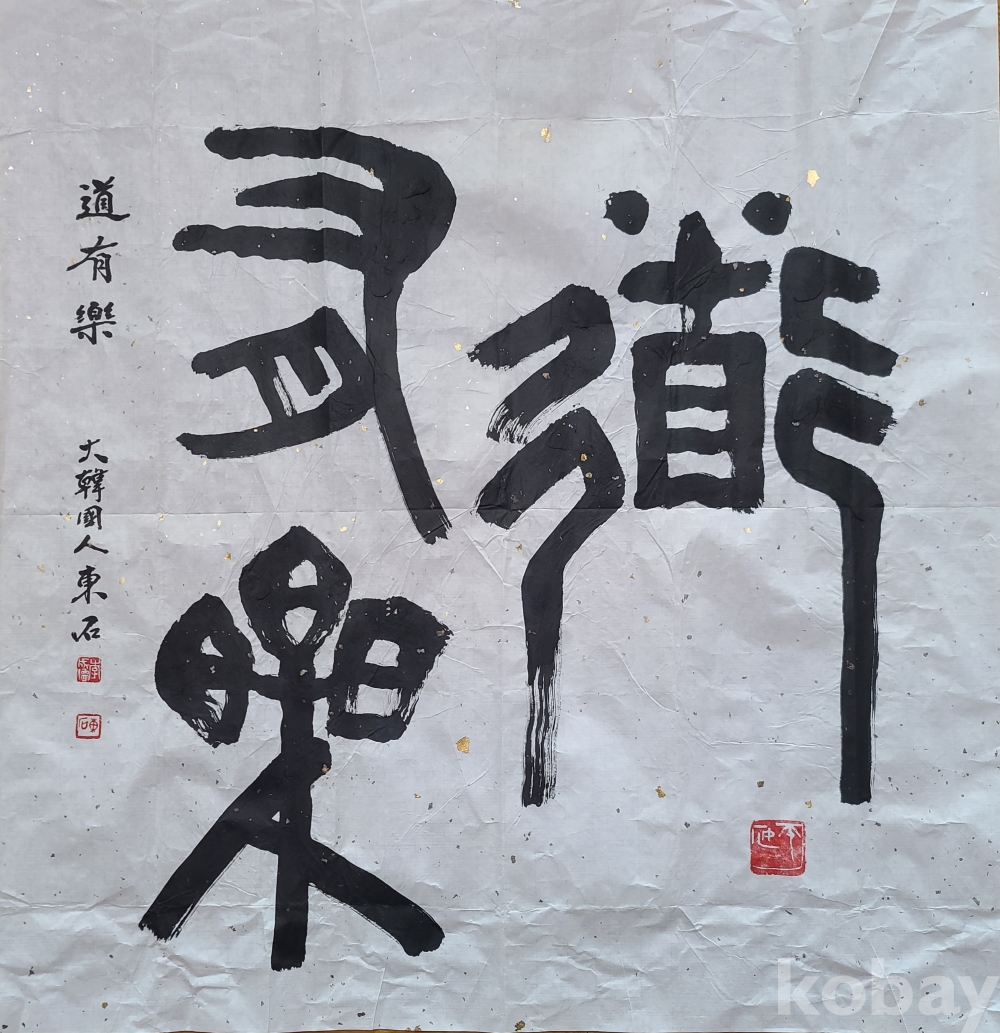 道
有樂
道有樂
大韓國人東石
kobay